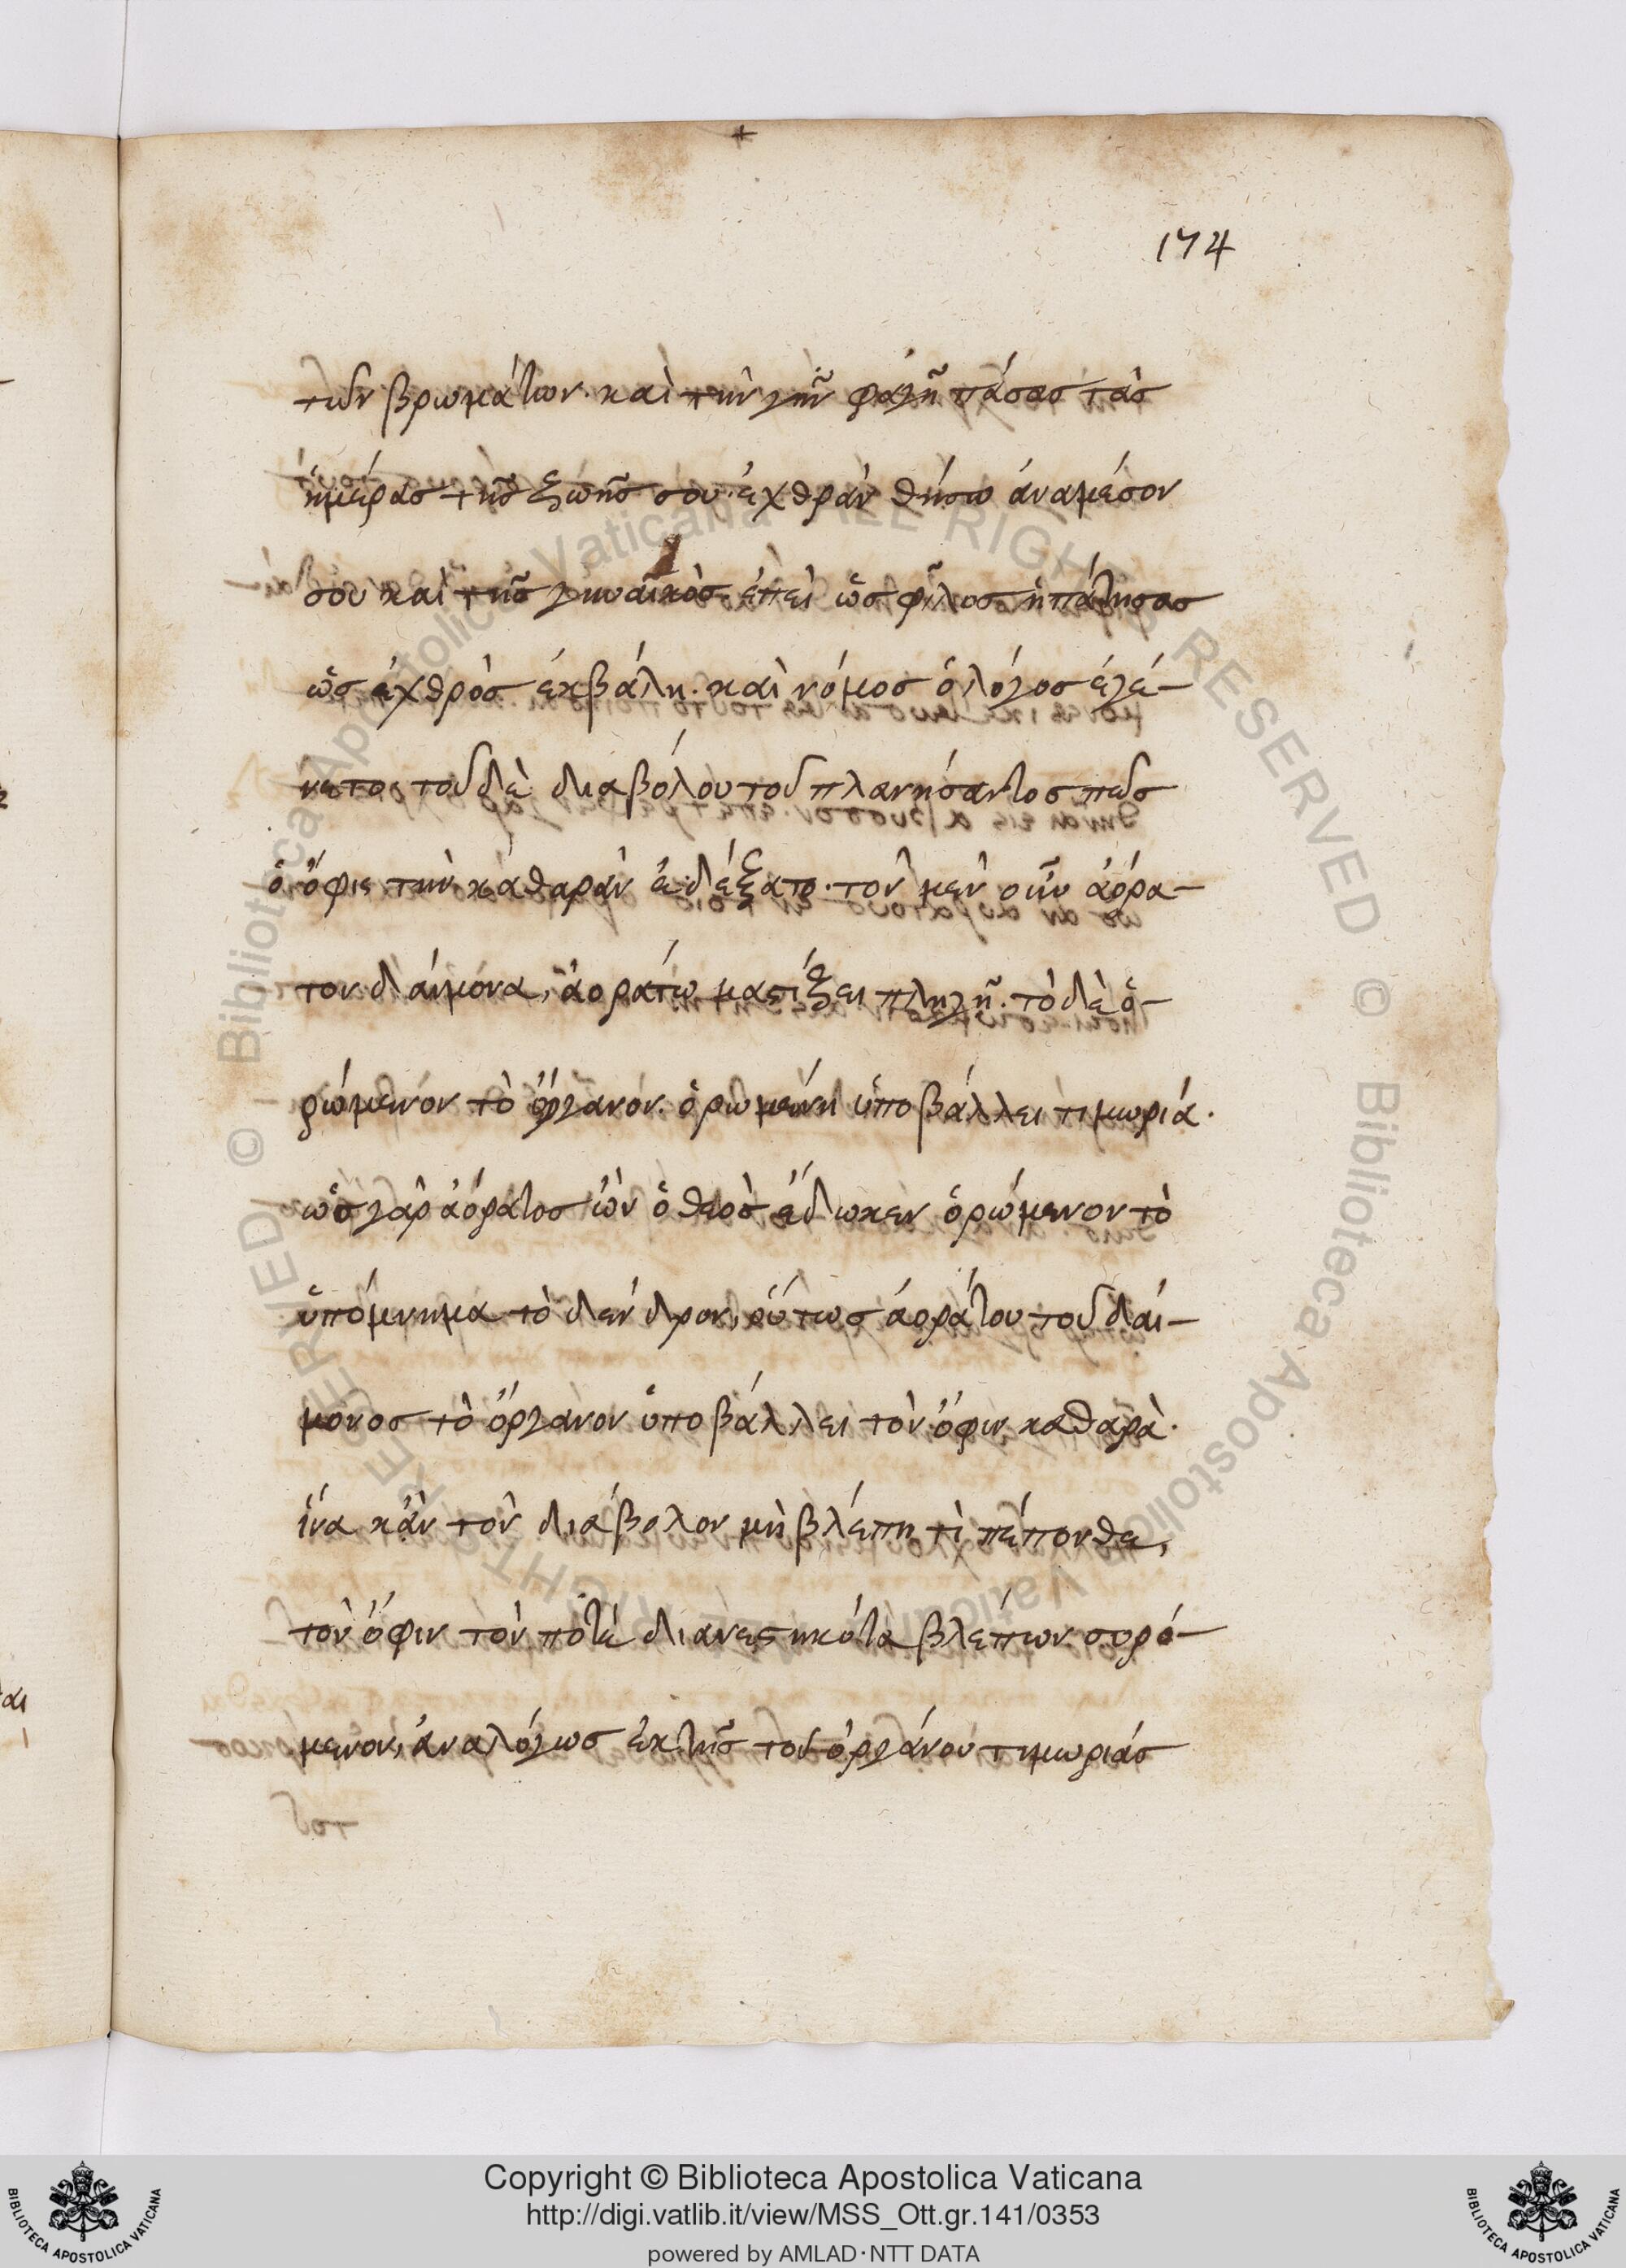 174
τῶν βρωμάτων. καὶ τὴν γῆν φαγῇ πάσας τὰς
ἡμέρας τῆς ζωῆς σου. ἐχθρὰν θήσω ἀναμέσον
σου καὶ τῆς γυναῖκὸς. ἐπεὶ ὡς φίλος ἠπάτησας
ὡς ἐχθρὸς ἐκβάλη. καὶ νόμος ὁ λόγος ἐγέ-
νετο, τοῦ δὲ διαβόλου τοῦ πλανήσαντος πῶς
ὁ ὄφις τὴν κάθαρὰν ἐδέξατο. τὸν μὲν οὖν ἀόρα-
τον δαίμονα, ἀοράτω μαστίξει πληγῇ. τὸ δὲ ὁ-
ρώμενον τὸ ὄργανον. ὁρωμένη ὑποβάλλει τιμωρία.
ὡς γὰρ ἀόρατος ὢν ὁ θεὸς ἔδωκεν ὁρώμενον τὸ
ὑπόμνημα τὸ δένδρον, οὕτως ἀοράτου τοῦ δαί-
μονος τὸ ὄργανον ὑποβάλλει τὸν ὄφιν καθαρὰ.
ἵνα κἂν τὸν διάβολον μὴ βλέπη τὶ πέπονθε,
τὸν ὄφιν τὸν ποτὲ διανεστηκότα βλέπων συρό-
μενον, ἀναλόγως ἐκ τῆς τοῦ ὀργάνου τιμωριάς
Copyright © Biblioteca Apostolica Vaticana
http://digi.vatlib.it/view/MSS_Ott.gr.141/0353
powered by AMLAD·NTT DATA